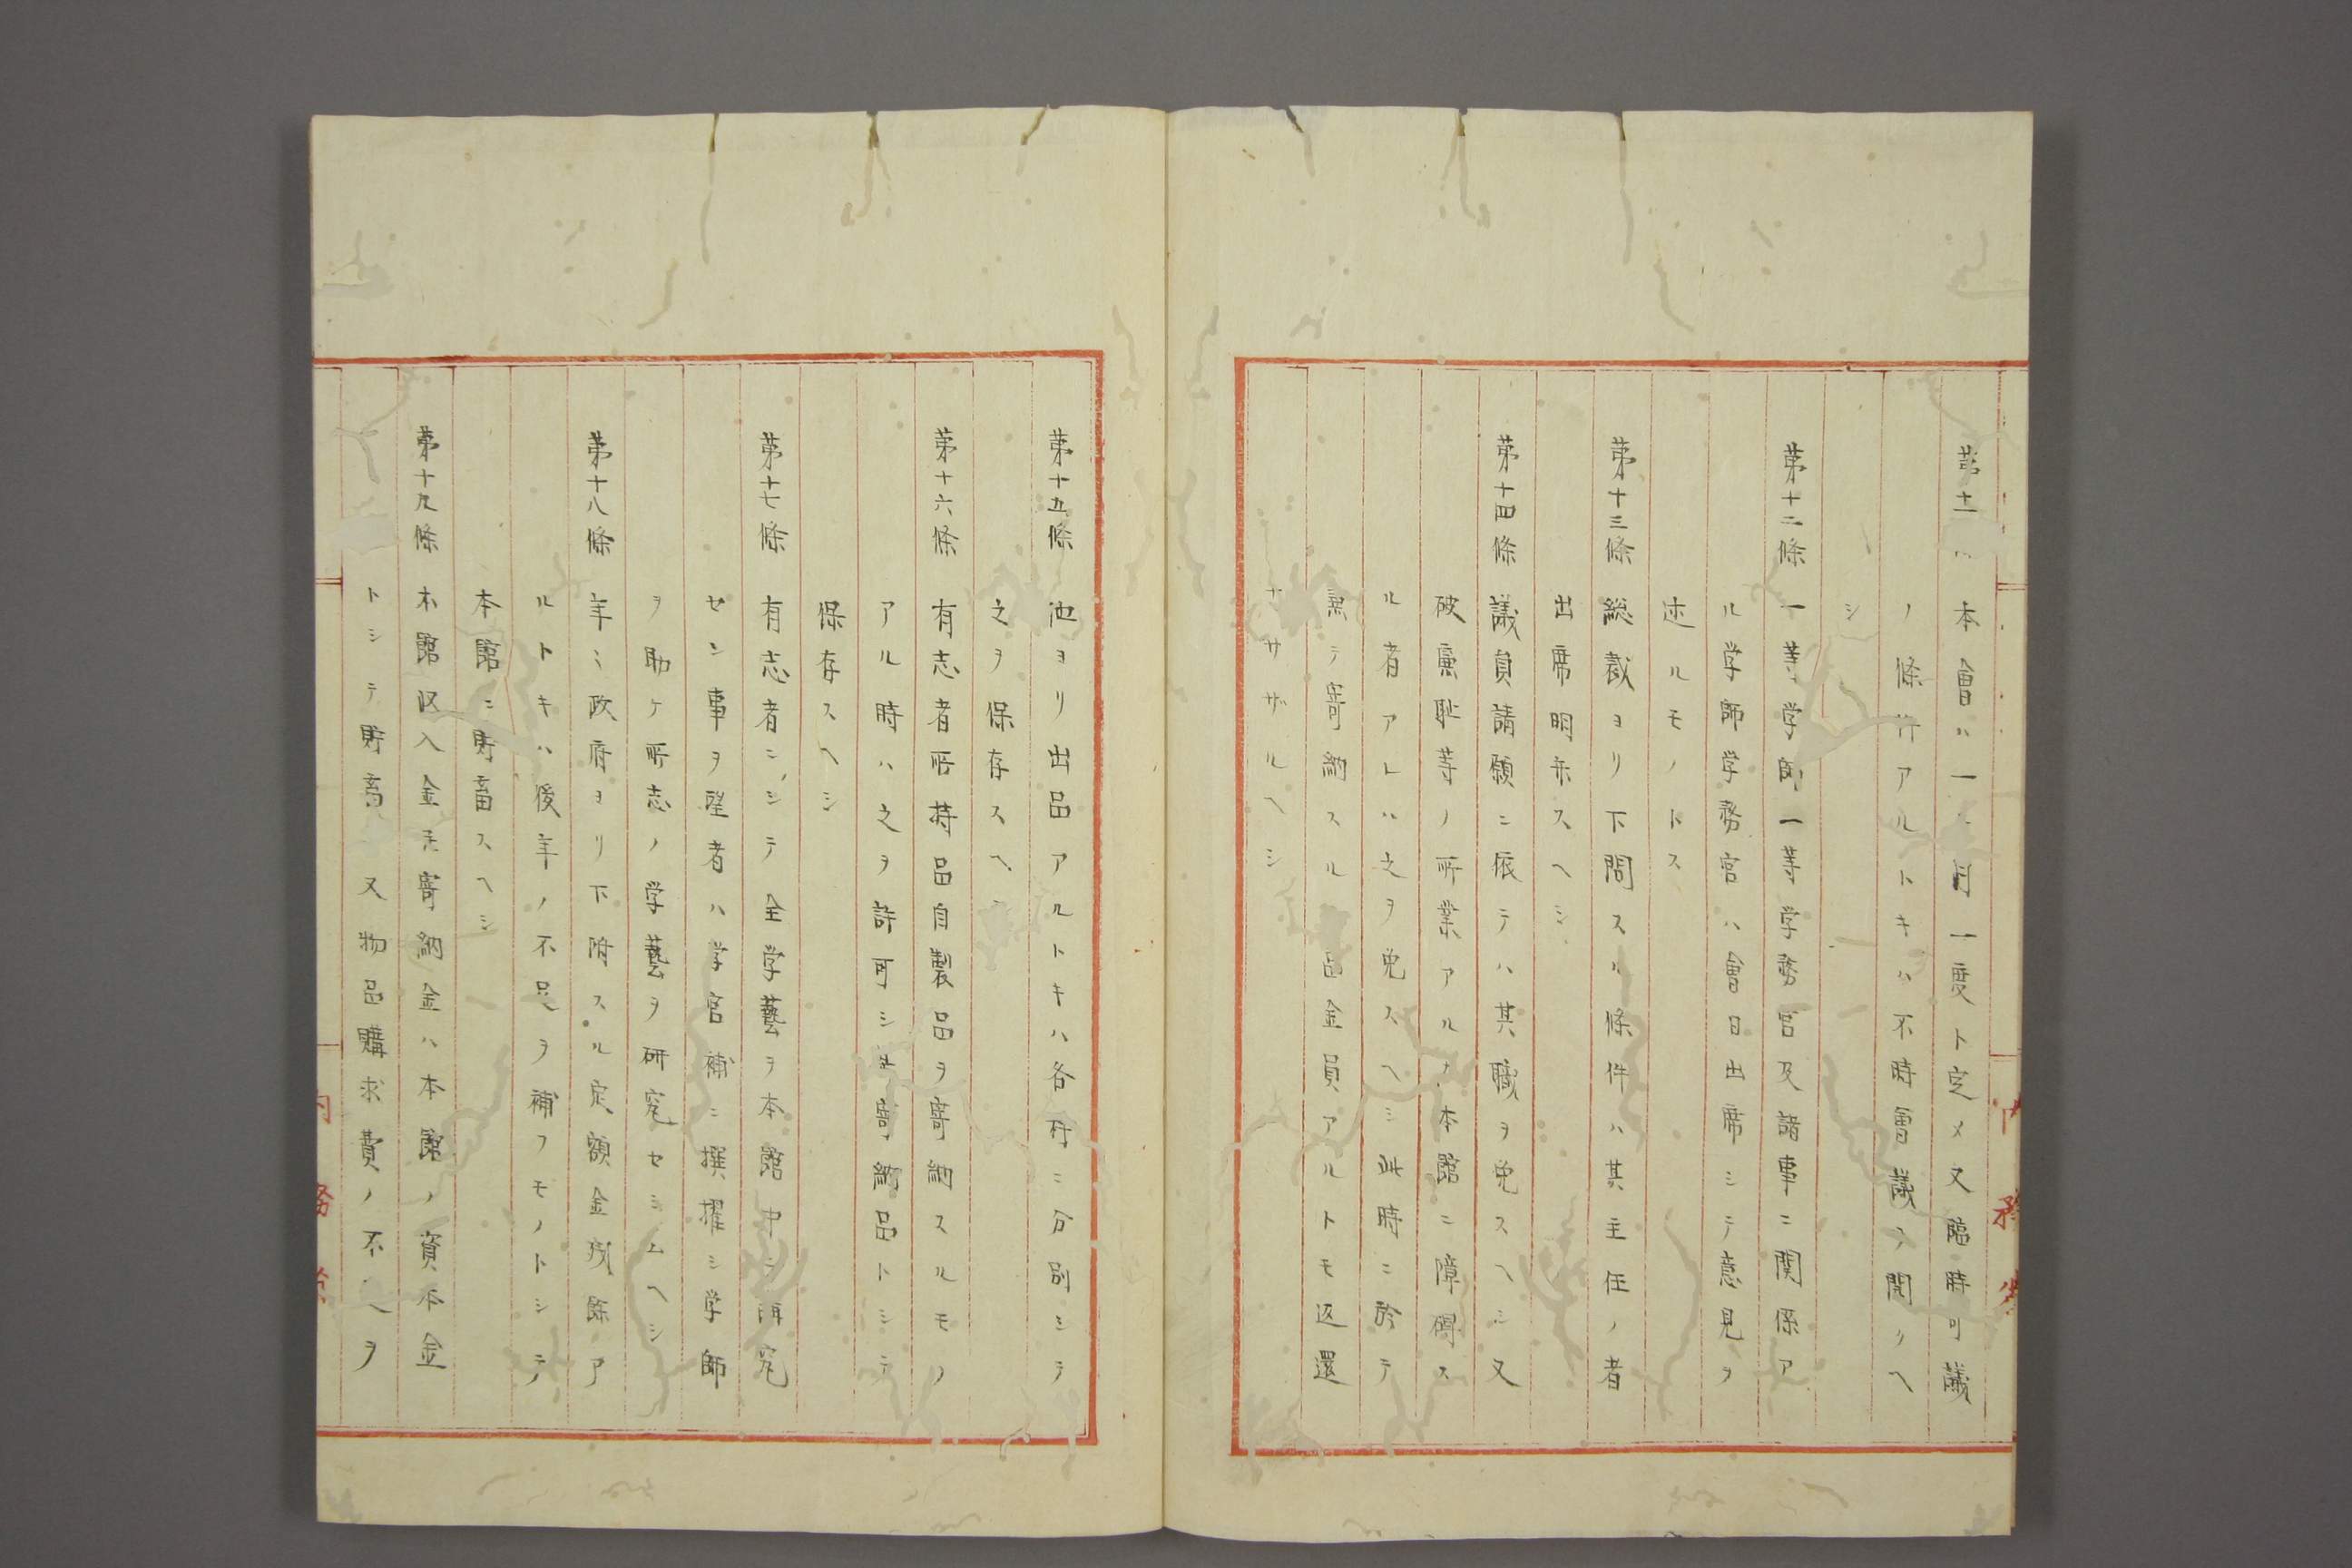 第十一 本會ハ一 月一度ト定メ又臨時可議
ノ條件アルトキハ不時會議ヲ開クヘ
シ
第十二條 一等学師一等学務官及諸事ニ関係ア
ル学師学務官ハ會日出席シテ意見ヲ
述ルモノトス
第十三條 総裁ヨリ下問スル條件ハ其主任ノ者
出席明示スヘシ
第十四條 議員請願ニ依テハ其職ヲ免スヘシ又
破廉恥等ノ所業アルカ本館ニ障碍ス
ル者アレハ之ヲ免スヘシ此時ニ於テ
兼テ寄納スル 品金員アルトモ返還
ナサザルヘシ
第十五條 池ヨリ出品アルトキハ各村ニ分別シテ
之ヲ保存スヘ
第十六條 有志者所持品自製品ヲ寄納スルモノ
アル時ハ之ヲ許可シ其寄納品トシテ
保存スヘシ
第十七條 有志者ニシテ全学藝ヲ本館中ニ研究
セン事ヲ望者ハ学官補ニ撰擢シ学師
ヲ助ケ所志ノ学藝ヲ研究セシムヘシ
第十八條 年ミ政府ヨリ下附スル定額金残餘ア
ルトキハ後年ノ不足ヲ補フモノトシテ
本館ニ貯畜スヘシ
第十九條 本館収入金並寄納金ハ本館ノ資本金
トシテ貯畜 又物品購求費ノ不 ヲ
内務省
内務省